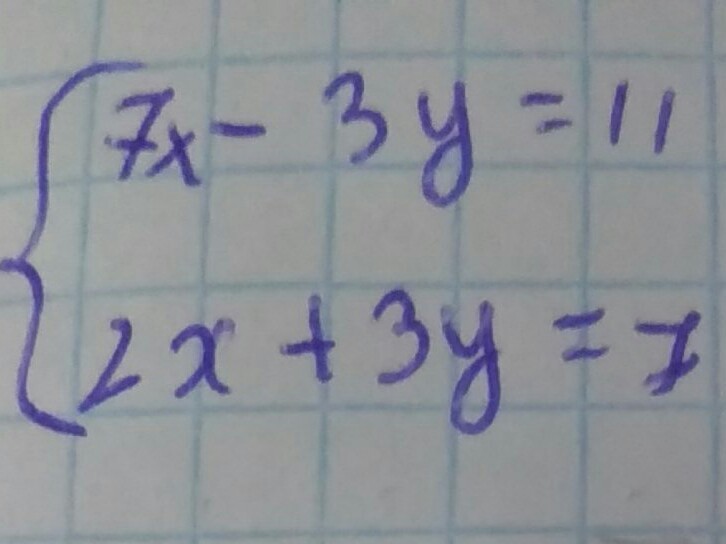 7x - 3y = 11
2x + 3y = 7